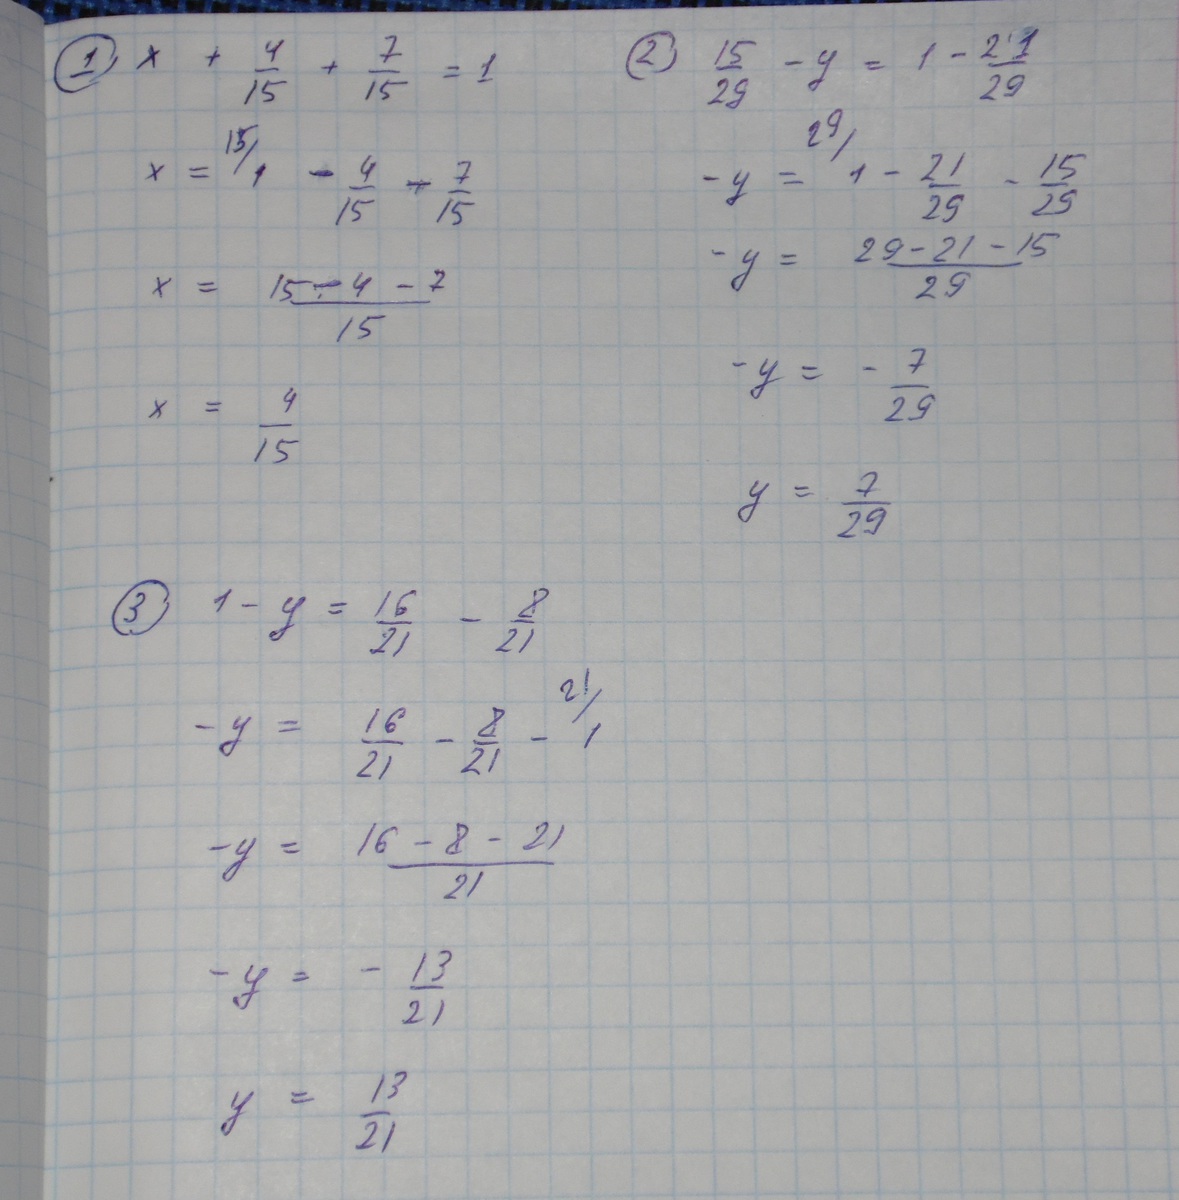 ① x + 4/15 + 7/15 = 1
x = 15/ 1 - 4/15 - 7/15
x = (15 - 4 - 7)/15
x = 4/15
② 15/29 - y = 1 - 21/29
-y = 29/ 1 - 21/29 - 15/29
-y = (29 - 21 - 15)/29
-y = - 7/29
y = 7/29
③ 1 - y = 16/21 - 8/21
-y = 16/21 - 8/21 - 21/ 1
-y = (16 - 8 - 21)/21
-y = - 13/21
y = 13/21